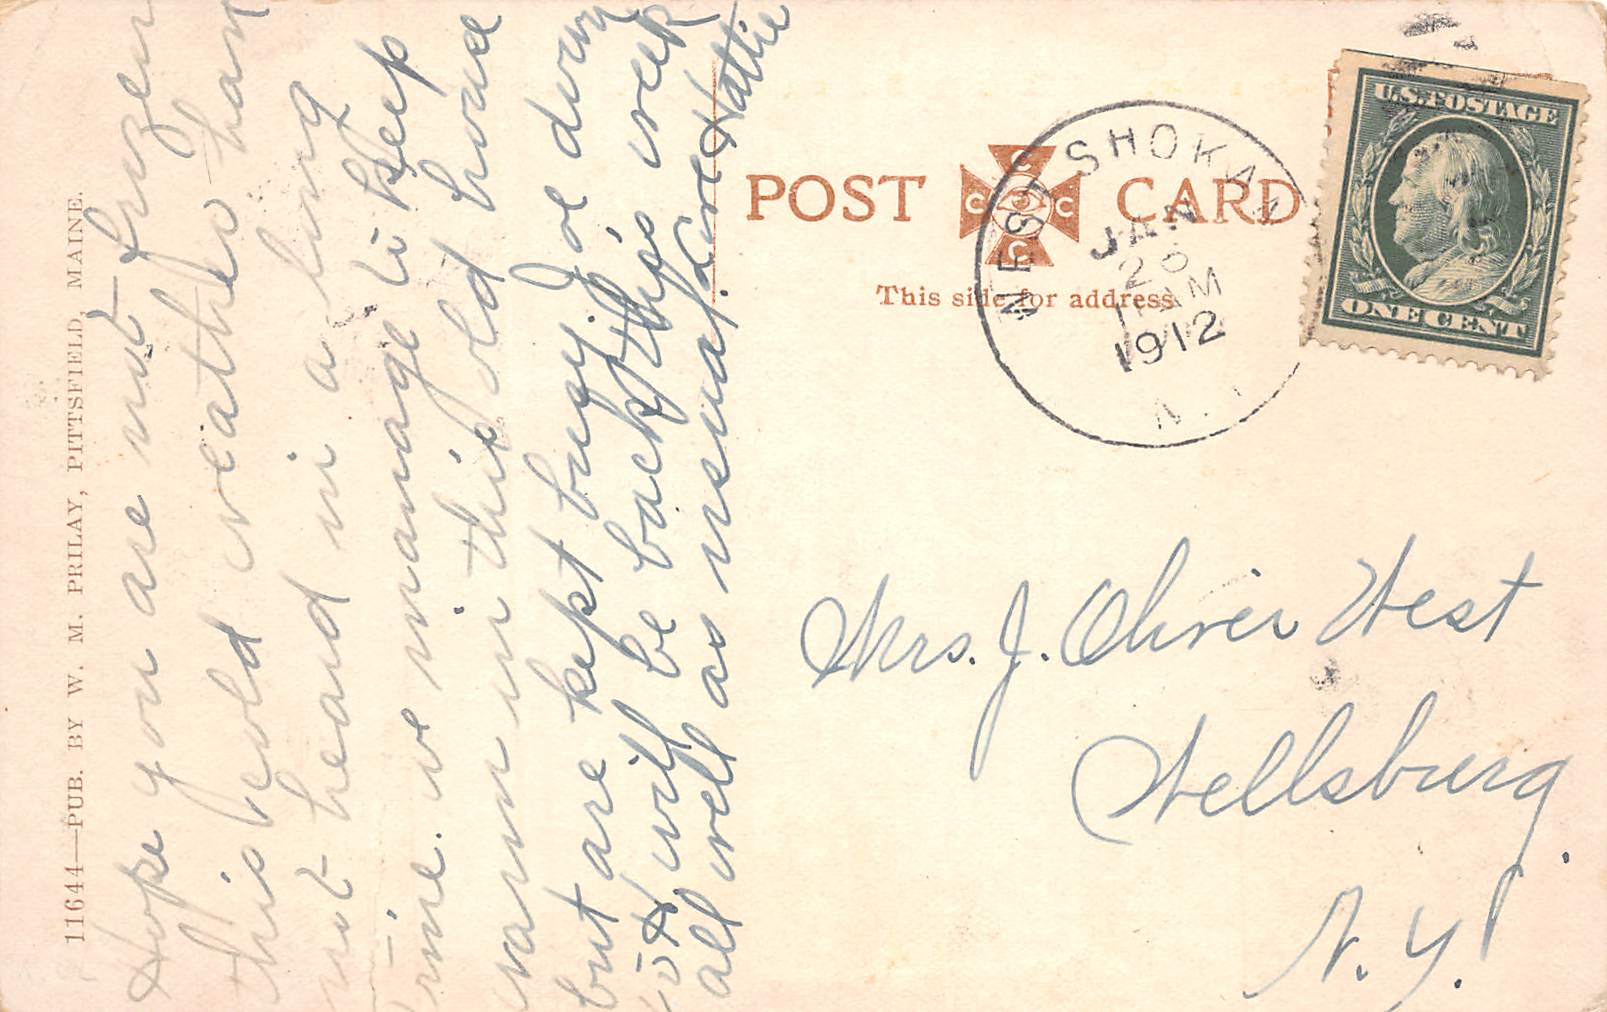 11644—PUB. BY W. M. PRILAY, PITTSFIELD, MAINE.
Hope you are not frozen
this cold weather han
not heard in a long
time. we manage to keep
warm in this old house
but are kept busy. Joe down
to H will be back this week
all well as usual. Love Hattie
POST CARD
C C C C
This side for address
WEST SHOKAN
JAN
11 AM
1912
N.Y.
U.S. POSTAGE
ONE CENT
Mrs. J. Oliver West
Wellsburg
N. Y.